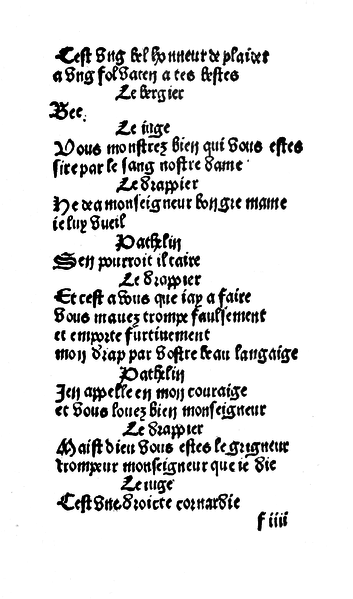 Cest vng bel honneur de plaider
a vng fol vaten a tes bestes
Le bergier
Bee.
Le iuge
Vous monstrez bien qui vous estes
sire par le sang nostre dame
Le drappier
He dea monseigneur bon gre mame
ie luy vueil
Pathelin
Sen pourroit il taire
Le drappier
Et cest a vous que iay a faire
vous mauez trompe faulsement
et emporte furtiuement
mon drap par vostre beau langaige
Pathelin
Jen appelle en mon couraige
et vous louez bien monseigneur
Le drappier
Maist dieu vous estes le grigneur
trompeur monseigneur que ie die
Le iuge
Cest vne droicte cornardie
f iiii